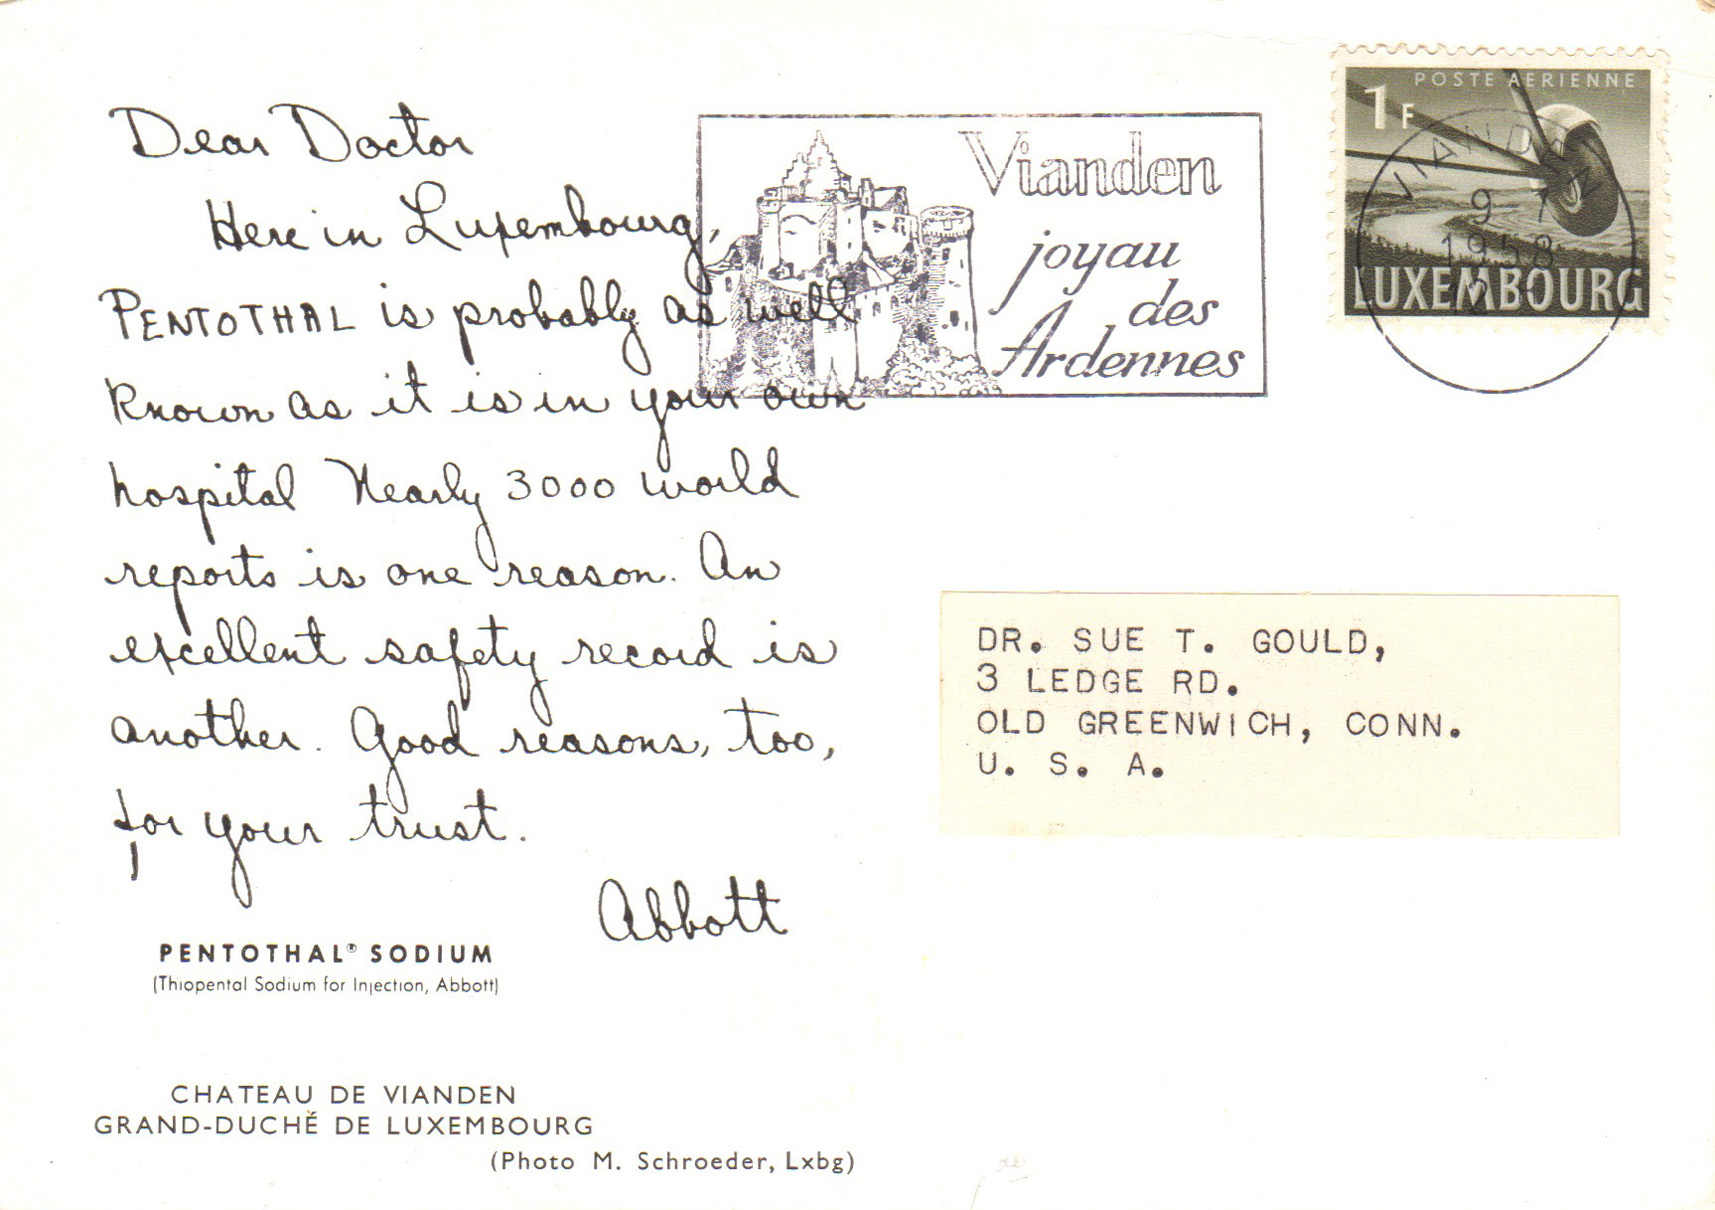 Dear Doctor
Here in Luxembourg,
PENTOTHAL is probably as well
known as it is in your own
hospital Nearly 3000 world
reports is one reason. An
excellent safety record is
another. Good reasons, too,
for your trust.
Abbott
PENTOTHAL® SODIUM
(Thiopental Sodium for Injection, Abbott)
CHATEAU DE VIANDEN
GRAND-DUCHĚ DE LUXEMBOURG
(Photo M. Schroeder, Lxbg)
Vianden
joyau
des
Ardennes
POSTE AERIENNE
1F
LUXEMBOURG
VIANDEN
9 7
1958
DR. SUE T. GOULD,
3 LEDGE RD.
OLD GREENWICH, CONN.
U. S. A.